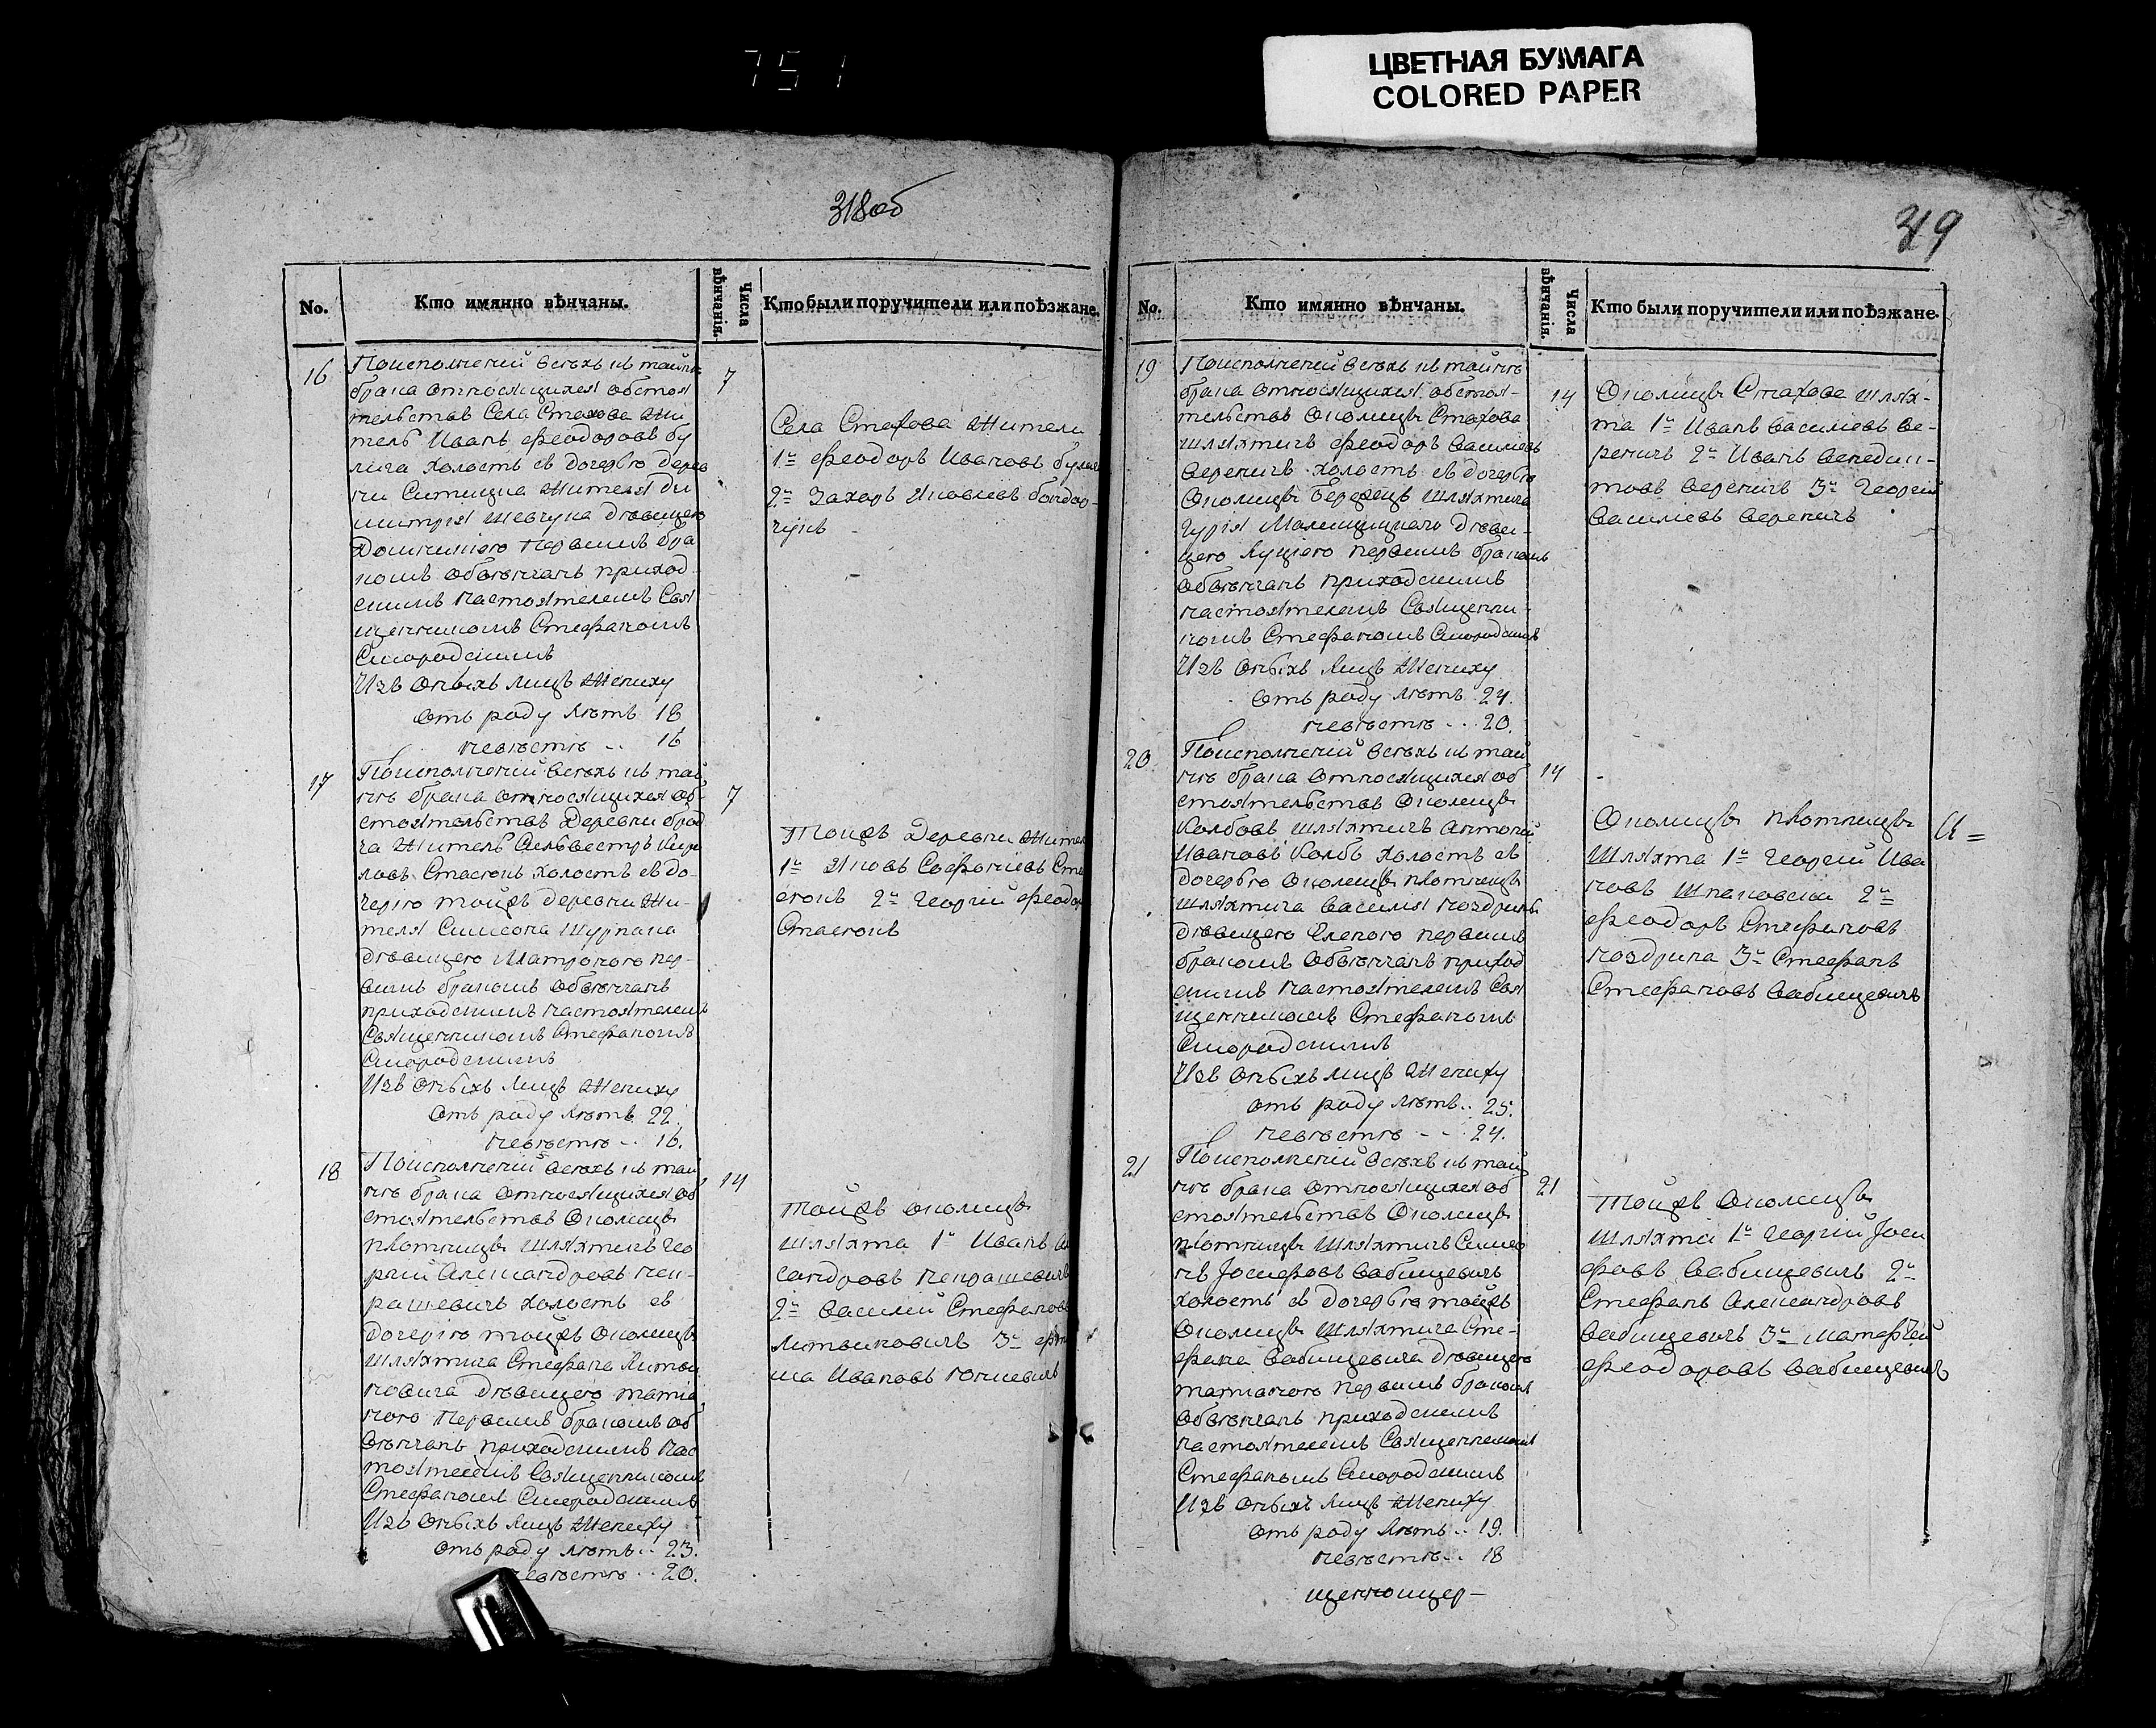 751
ЦВЕТНАЯ БУМАГА
COLORED PAPER
318об
319
No.
Кто имянно вѣнчаны.
Числа вѣнчанія.
Кто были поручители или поѣзжане.
16
Поисполненій всѣхъ къ тайнѣ
брака относящихся обстоя
тельствъ Села Стахова Жи
тель Иванъ Феодоровъ бу
лыга холостъ съ дочерью дерев
ни Ситицка Жителя Ди
митрія Шевчука дѣвицею
Домникіею Первымъ бра
комъ обвѣнчанъ приход
скимъ настоятелемъ Свя
щенникомъ Стефаномъ
Смородскимъ
Изъ оныхъ лицъ Жениху
отъ роду лѣтъ 18
невѣстѣ .. 16
7
Села Стахова Жители
1й Феодоръ Ивановъ
2й Захаръ Яковлевъ бондар-
чукъ
17
Поисполненій всѣхъ къ тай
нѣ брака относящихся об-
стоятельствъ Деревни брод
ча Житель Сельвестръ Кири
ловъ Стасюкъ холостъ съ до-
черію тойжъ деревни Жи-
теля Симеона Шурпака
дѣвицею Матроною пер-
вымъ бракомъ обвѣнчанъ
приходскимъ настоятелемъ
Священникомъ Стефаномъ
Смородскимъ
Изъ оныхъ лицъ Жениху
отъ роду лѣтъ 22.
невѣстѣ .. 16.
7
Тойжъ Деревни Жители
1й Яковъ Софоніевъ Ста
сюкъ 2й Георгій Феодор
Стасюкъ
18
Поисполненій всѣхъ къ тай
нѣ брака относящихся об
стоятельствъ Околицы
плотницы шляхтичъ Гео
ргій Александровъ Неп-
рашевичъ холостъ съ
дочерію тойжъ Околицы
шляхтича Стефана Литви
новича дѣвицею татиа
ною Первымъ бракомъ об
вѣнчанъ приходскимъ нас
тоятелемъ Священникомъ
Стефаномъ Смородскимъ
Изъ оныхъ лицъ Жениху
отъ роду лѣтъ .. 23.
невѣстѣ .. 20.
14
тойжъ околицы
шляхта 1й Иванъ
сандровъ Непрашевичъ
2й Василій Стефановъ
Литвиновичъ 3й
ма Ивановъ
No.
Кто имянно вѣнчаны.
Числа вѣнчанія.
Кто были поручители или поѣзжане.
19
Поисполненій всѣхъ къ тайнѣ
брака относящихся обстоя-
тельствъ Околицы Стахова
шляхтичъ Феодоръ Васильевъ
Вереничъ холостъ съ дочерью
Околицы Бережецъ шляхтича
Гурія дѣви-
цею Луціею первымъ бракомъ
обвѣнчанъ приходскимъ
настоятелемъ Священни-
комъ Стефаномъ Смородскимъ
Изъ оныхъ лицъ Жениху
отъ роду лѣтъ 24.
невѣстѣ .. 20.
14
Околицы Стахова шлях-
та 1й Иванъ Васильевъ Ве-
реничъ 2й Иванъ Венедик-
товъ Вереничъ 3й Георгій
Васильевъ Вереничъ
20
Поисполненій всѣхъ къ тай
нѣ брака относящихся об
стоятельствъ Околицы
Колбовъ шляхтичъ Антоній
Ивановъ Колбъ холостъ съ
дочерью Околицы плотницы
шляхтича Василія Ноздрина
дѣвицею Еленою первымъ
бракомъ обвѣнчанъ приход
скимъ настоятелемъ Свя
щенникомъ Стефаномъ
Смородскимъ
Изъ оныхъ лицъ Жениху
отъ роду лѣтъ .. 25.
невѣстѣ - - 24.
14
Околицы плотницы
шляхта 1й Георгій Ива
новъ Шпаковскій 2й
Феодоръ Стефановъ
Ноздрина 3й Стефанъ
Стефановъ Вабищевичъ
21
Поисполненій всѣхъ къ тай
нѣ брака относящихся об
стоятельствъ Околицы
плотницы шляхтичъ Симео
нъ Іосифовъ Вабищевичъ
холостъ съ дочерью тойжъ
Околицы шляхтича Сте-
фана Вабищевича дѣвицею
татианою первымъ бракомъ
обвѣнчанъ приходскимъ
настоятелемъ Священникомъ
Стефаномъ Смородскимъ
Изъ оныхъ лицъ Жениху
отъ роду лѣтъ .. 19.
невѣстѣ .. 18
21
тойжъ Околицы
шляхта 1й Георгій Іоси
фовъ Вабищевичъ 2й
Стефанъ Александровъ
Вабищевичъ 3й Матфей
Феодоровъ Вабищевичъ